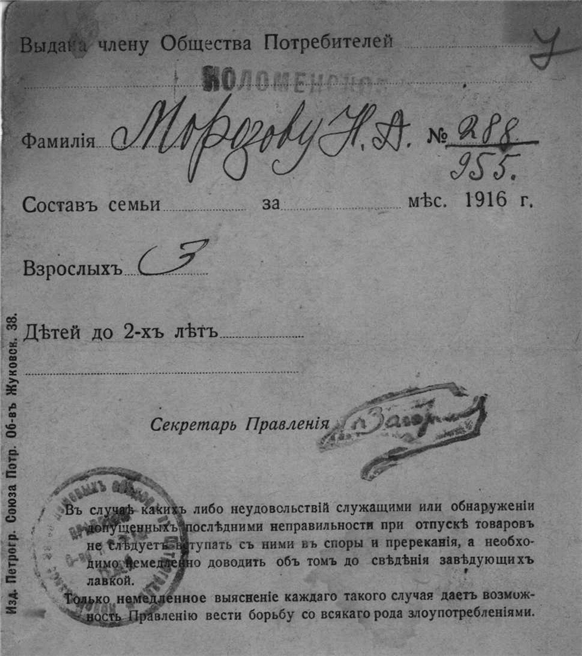 Выдана члену Общества Потребителей
КОЛОМЕНСКОЕ
Фамилія Морозову Н. А. № 288
955.
Составъ семьи за мѣс. 1916 г.
Взрослыхъ 3
Дѣтей до 2-хъ лѣтъ
Секретарь Правленія
Въ случаѣ какихъ либо неудовольствій служащими или обнаруженіи
допущенныхъ послѣдними неправильности при отпускѣ товаровъ
не слѣдуетъ вступать съ ними въ споры и пререканія, а необхо-
димо немедленно доводить объ томъ до свѣдѣнія завѣдующихъ
лавкой.
Только немедленное выясненіе каждаго такого случая даетъ возмож-
ность Правленію вести борьбу со всякаго рода злоупотребленіями.
Изд. Петрогр. Союза Потр. Об-въ Жуковск. 38.